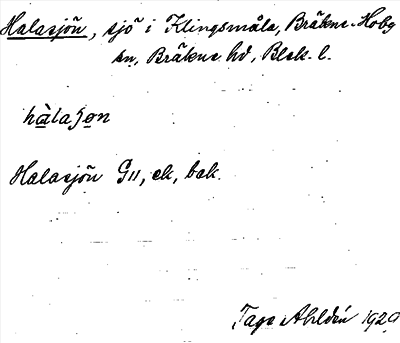 Halasjön, sjö i Klingsmåla, Bräkne-Hoby
sn, Bräkne hd, Blek. l.
hàlaʃo̲n
Halasjön G11, ek, bak.
Tage Ahldén 1929